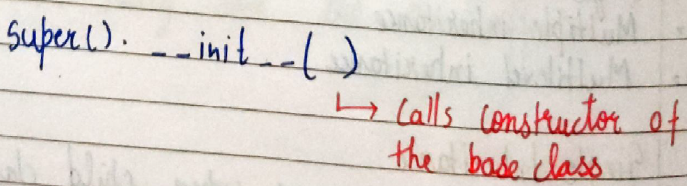 super(). __init__( )
↳ Calls constructor of
the base class